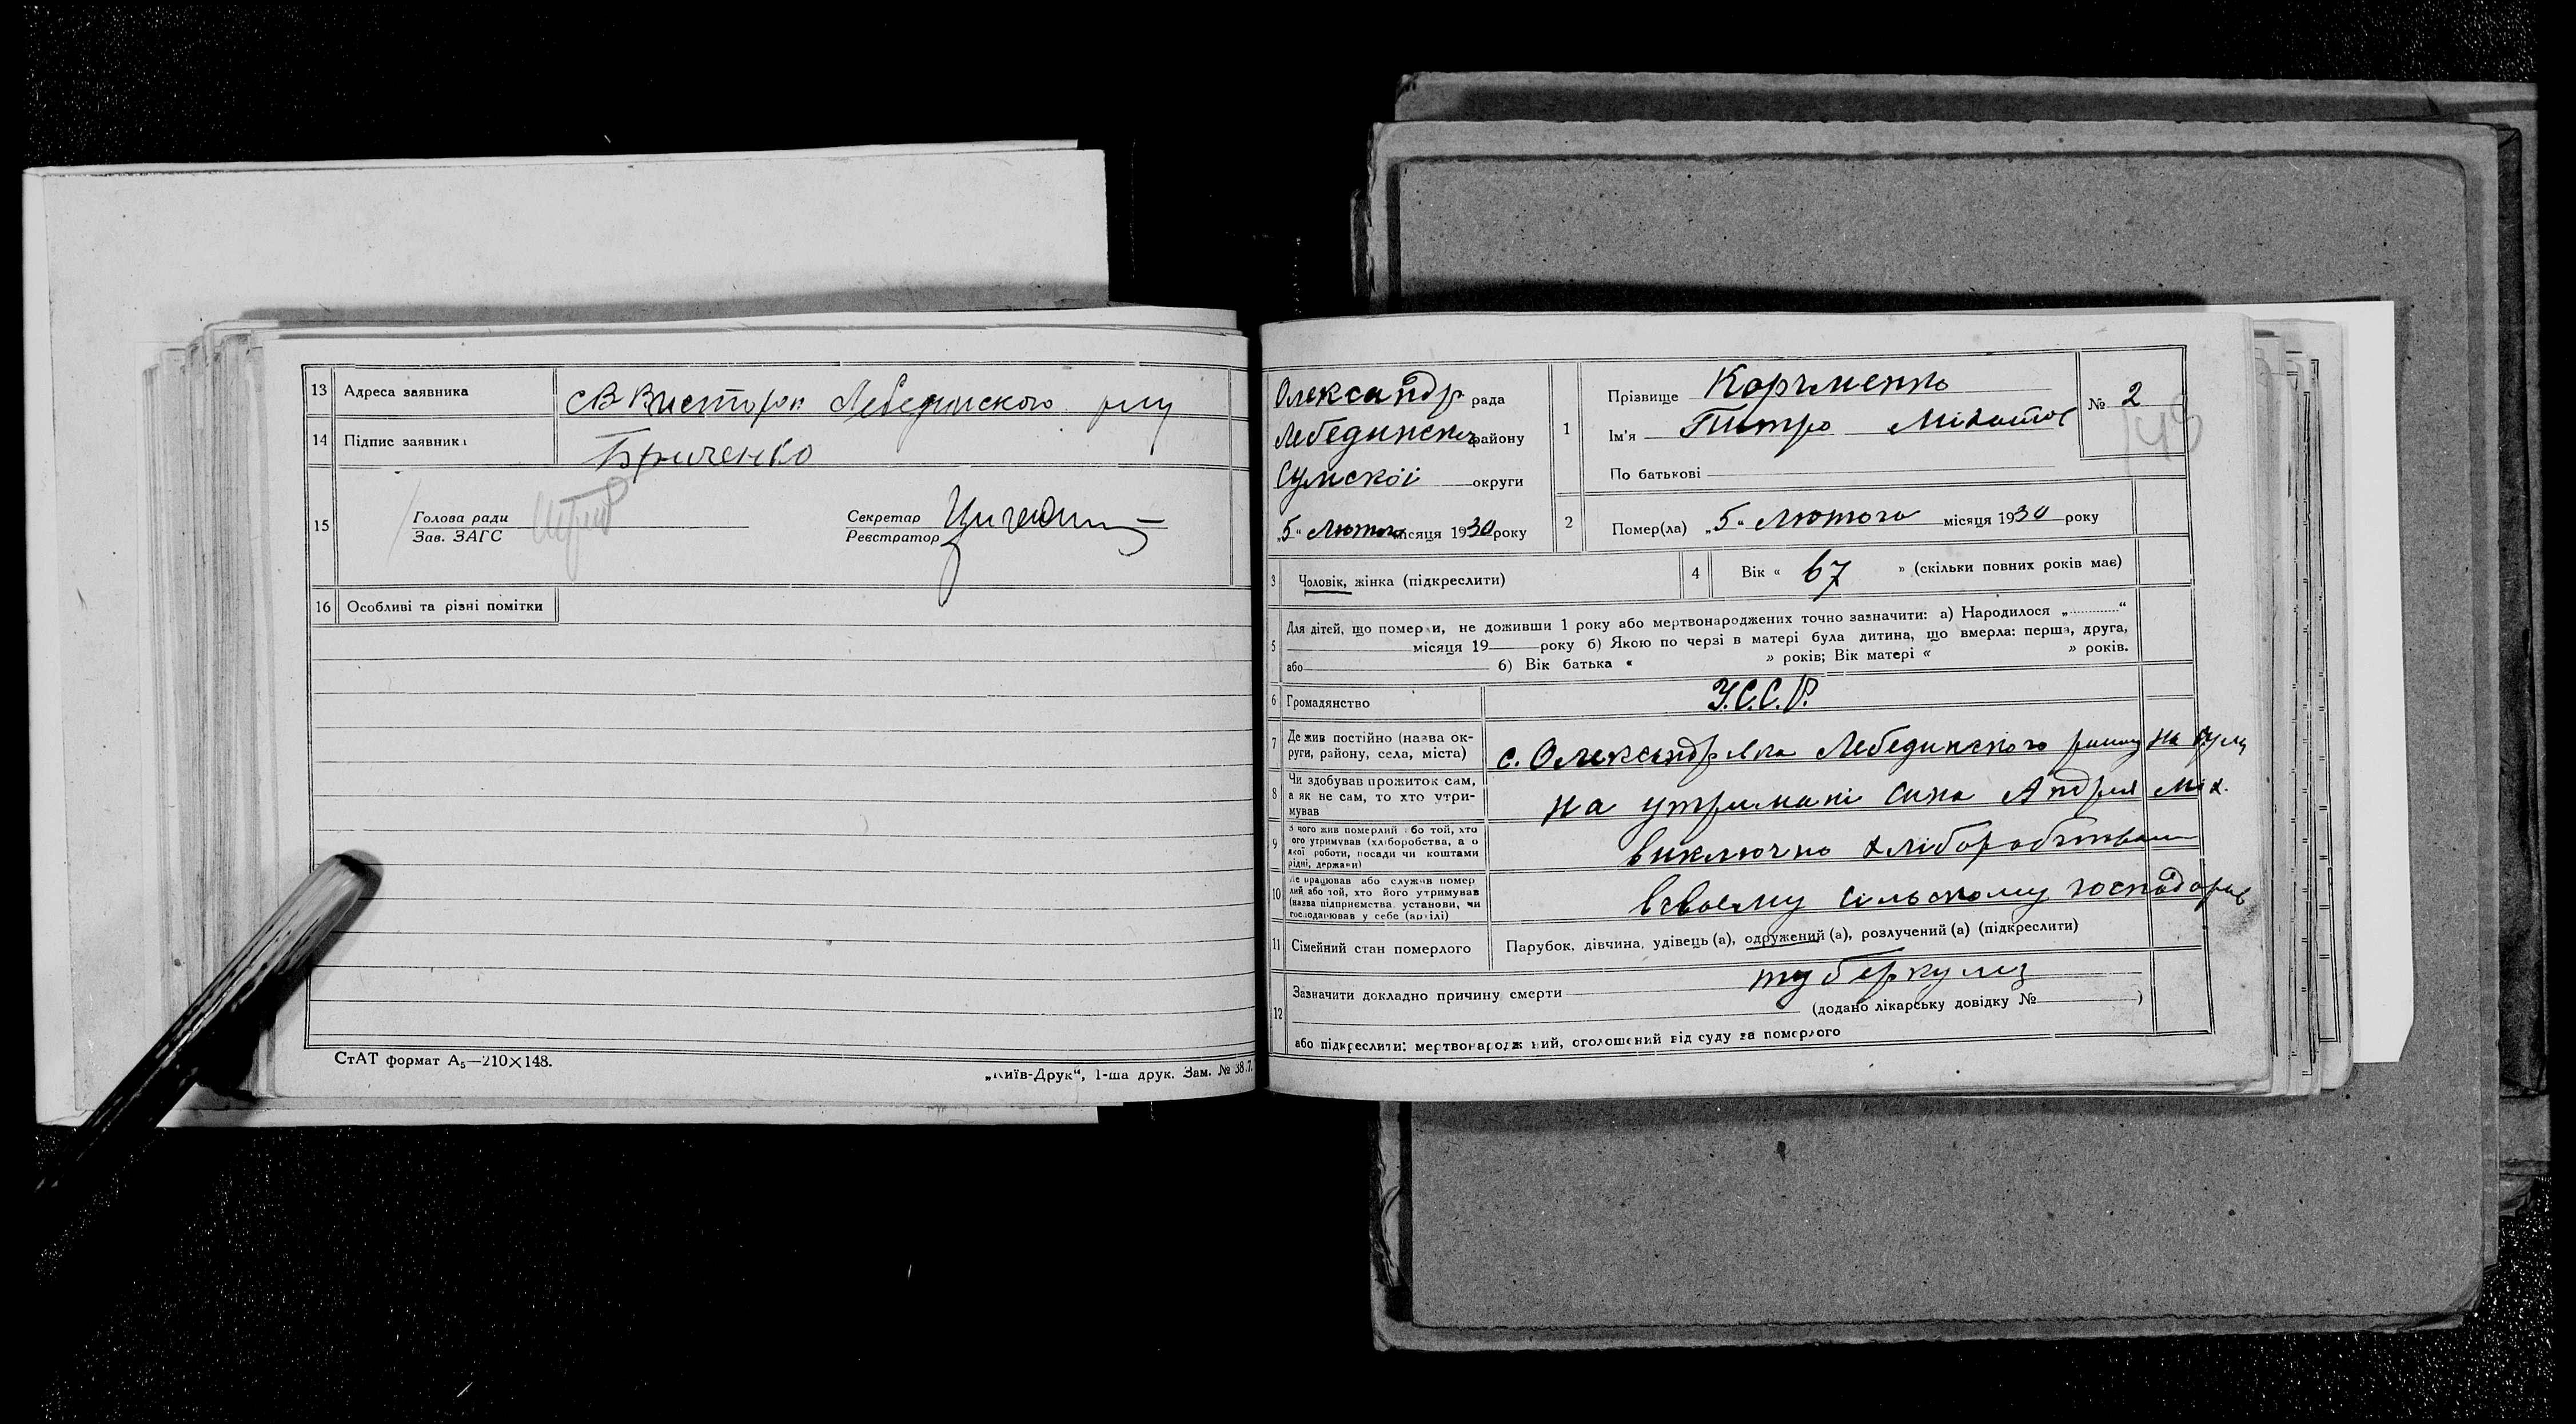 13 Адреса заявника с В Висторон Лебединского р-ну
14 Підпис заявника Бриченко
15 Голова ради
Зав. ЗАГС
Секретар
Реєстратор
16 Особливі та різні помітки
СтАТ формат А₅—210×148.
„Київ-Друк“, 1-ша друк. Зам. № 38.7.
Олександр рада
Лебединськ району
Сумскої округи
„5“ Лютого місяця 1930 року
1 Прізвище Коръменко
Ім'я Питро Міхайлов
По батькові
№ 2
2 Помер(ла) „5“ Лютого місяця 1930 року
3 Чоловік, жінка (підкреслити)
4 Вік « 67 » (скільки повних років має)
5 Для дітей, що померли, не доживши 1 року або мертвонароджених точно зазначити: а) Народилося „ “
місяця 19 року б) Якою по черзі в матері була дитина, що вмерла: перша, друга,
або б) Вік батька « » років; Вік матері « » років.
6 Громадянство У.С.С.Р.
7 Де жив постійно (назва ок-
руги, району, села, міста) с. Олександрівка Лебединского району на Сумщ
8 Чи здобував прожиток сам,
а як не сам, то хто утри-
мував на утримані сина Андрія Міх.
9 З чого жив померлий або той, хто
його утримував (хліборобства, а о
якої роботи, посади чи коштами
рідні, держави) виключно хліборобством
10 Де працював або служив помер
лий або той, хто його утримував
(назва підприємства, установи, чи
господарював у себе (артілі) в своєму сільскому господарів
11 Сімейний стан померлого Парубок, дівчина, удівець (а), одружений (а), розлучений (а) (підкреслити)
12 Зазначити докладно причину смерти туберкулз
(додано лікарську довідку № )
або підкреслити: мертвонароджений, оголошений від суду за померлого